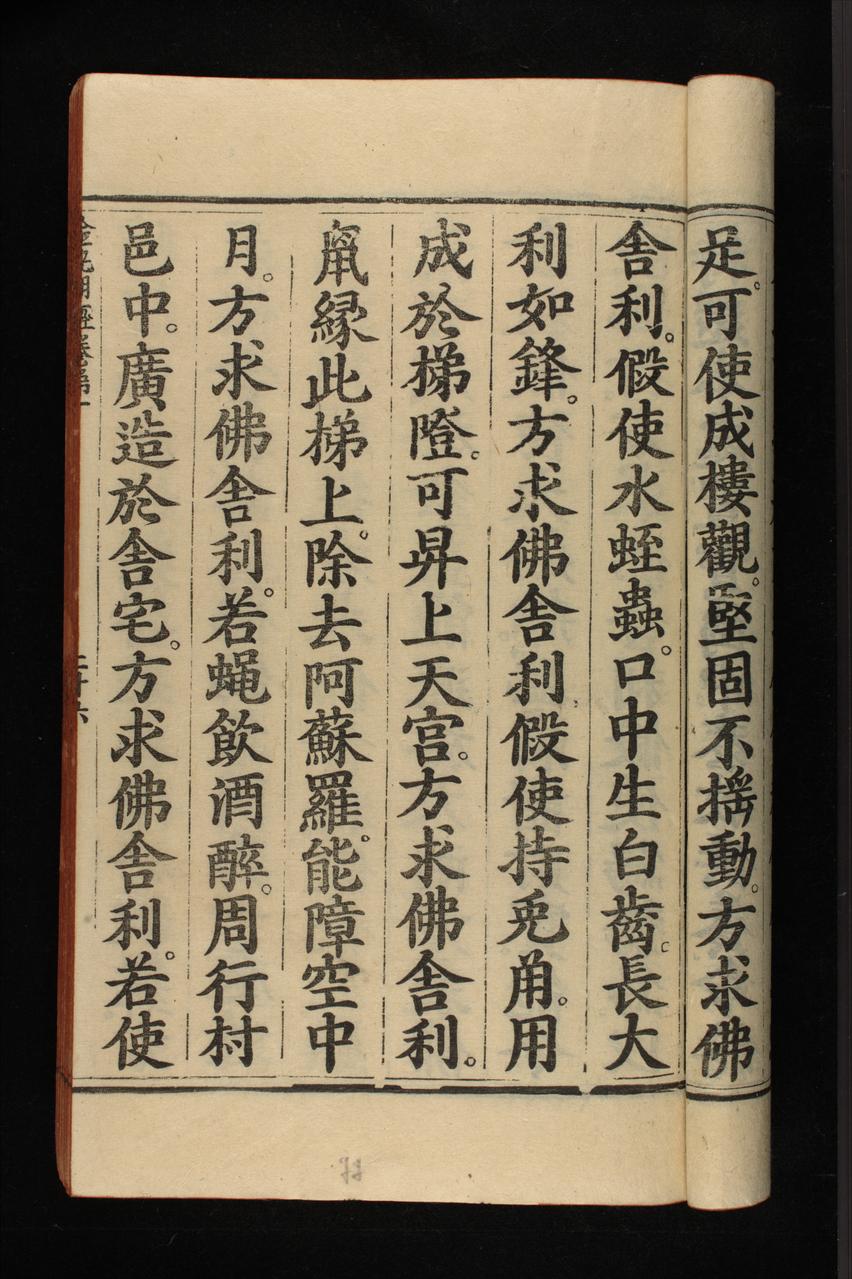 足。可使成樓觀。堅固不摇動。方求佛
舎利。假使水蛭蟲。口中生白齒。長大
利如鋒。方求佛舎利假使持兎角。用
成於梯隥。可昇上天宫。方求佛舎利。
鼠縁此梯上。除去阿蘇羅。能障空中
月。方求佛舎利。若蝿飲酒醉。周行村
邑中。廣造於舎宅。方求佛舎利。若使
金光明經卷第一